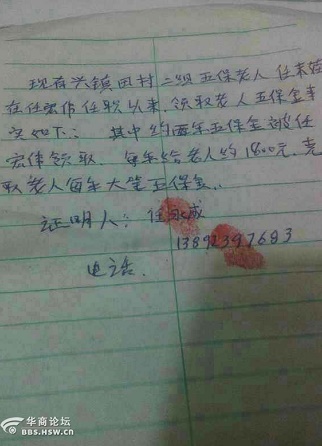 现有兴镇困村二组五保老人任来娃
在任宏伟任职以来,领取老人五保金事
实如下: 其中约两年五保金被任
宏伟领取. 每年给老人约1800元. 克
取老人每年大笔五保金..
证明人: 任永成
13892397683
电话.
华商论坛
BBS.HSW.CN